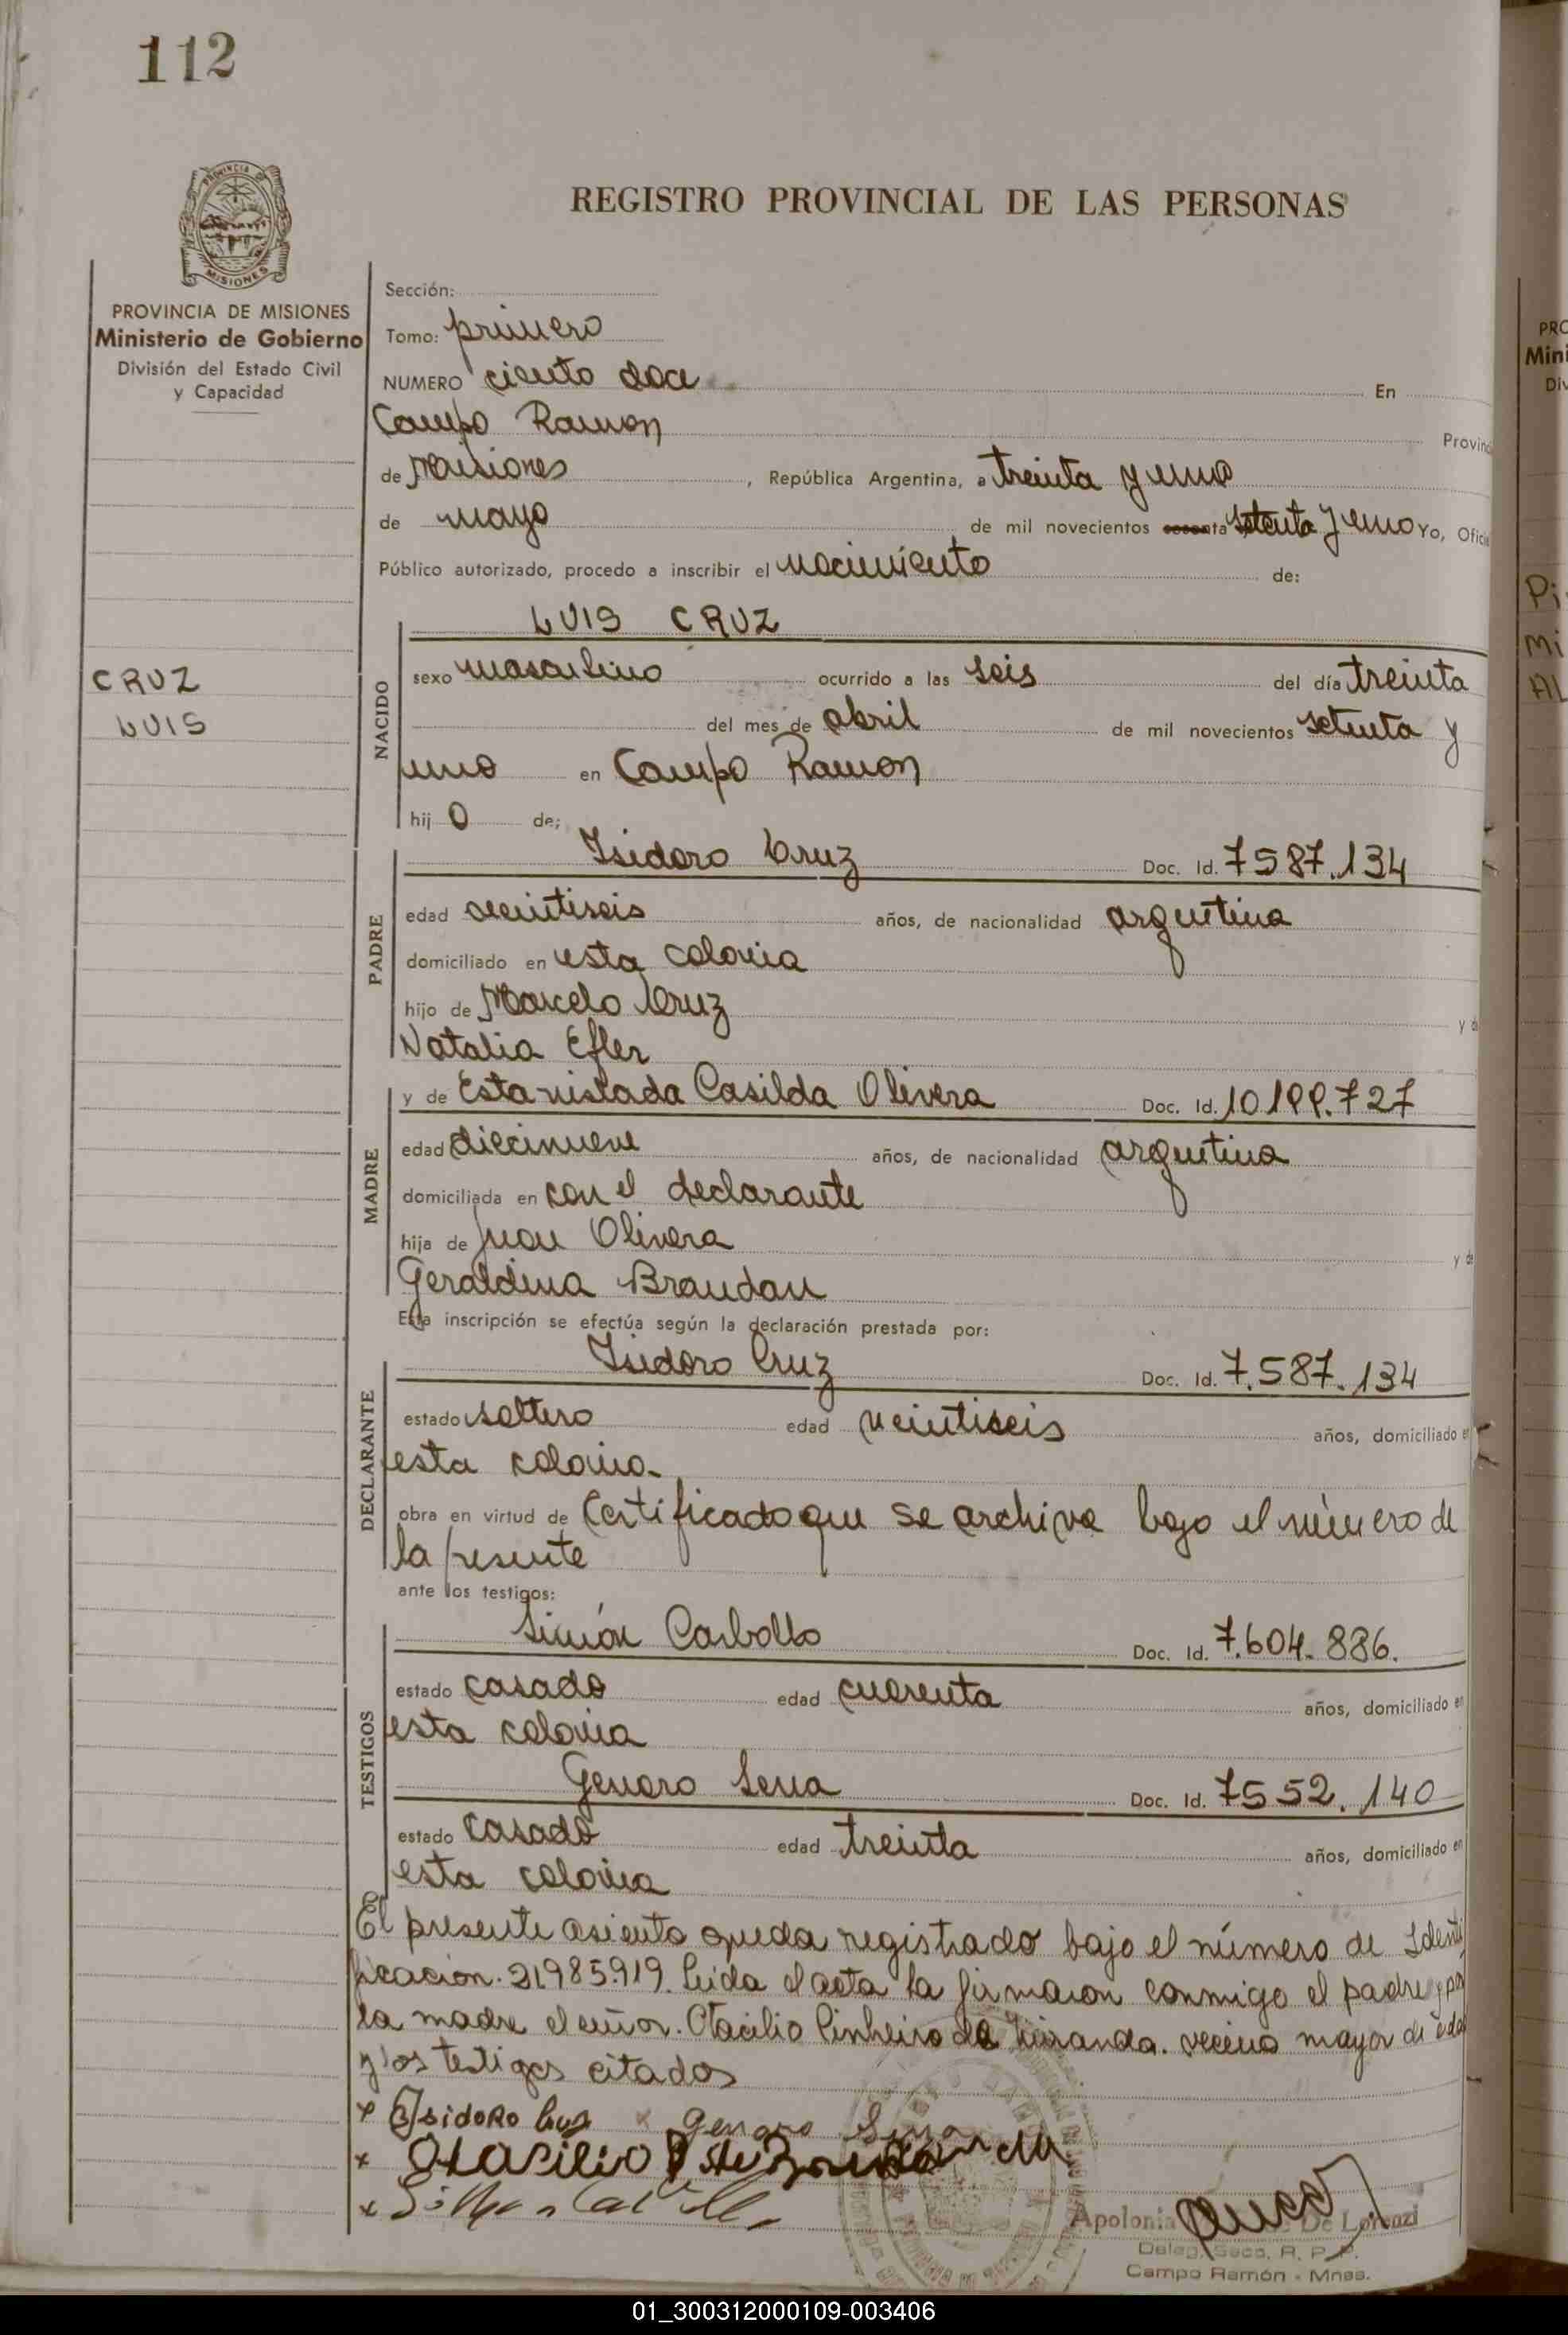 112
PROVINCIA DE
MISIONES
REGISTRO PROVINCIAL DE LAS PERSONAS
PROVINCIA DE MISIONES
Ministerio de Gobierno
División del Estado Civil
y Capacidad
CRUZ
LUIS
Sección:
Tomo: primero
NUMERO ciento doce En
Campo Ramon Provinc
de Misiones, República Argentina, a treinta y uno
de mayo de mil novecientos setenta y uno Yo, Ofici
Público autorizado, procedo a inscribir el nacimiento de:
NACIDO
LUIS CRUZ
sexo masculino ocurrido a las seis del día treinta
del mes de abril de mil novecientos setenta y
uno en Campo Ramon
hijo de;
PADRE
Isidoro Cruz Doc. Id. 7587.134
edad veintiseis años, de nacionalidad argentina
domiciliado en esta colonia
hijo de Marcelo Cruz y d
Natalia Efler
MADRE
y de Estanislada Casilda Olivera Doc. Id. 10199.727
edad diecinueve años, de nacionalidad argentina
domiciliada en con el declarante
hija de Juan Olivera y de
Geraldina Brandan
Esta inscripción se efectúa según la declaración prestada por:
DECLARANTE
Isidoro Cruz Doc. Id. 7.587.134
estado soltero edad veintiseis años, domiciliado en
esta colonia
obra en virtud de Certificado que se archiva bajo el número de
la presente
ante los testigos:
TESTIGOS
Simón Carballo Doc. Id. 7.604.886.
estado casado edad cuarenta años, domiciliado en
esta colonia
Genaro Sena Doc. Id. 7552.140
estado casado edad treinta años, domiciliado en
esta colonia
El presente asiento queda registrado bajo el número de Identi
ficacion. 21.985.919. Leida el acta la firmaron conmigo el padre y por
la madre el señor. Otacilio Pinheiro de Miranda. vecino mayor de edad
y los testigos citados
x Isidoro Cruz x Genaro Sena
x Otasilio
x
Apolonia De Lorenzi
Deleg. Secc. R. P. P.
Campo Ramón - Mnes.
PRO
Mini
Div
Pi
Mi
Al
01_300312000109-003406